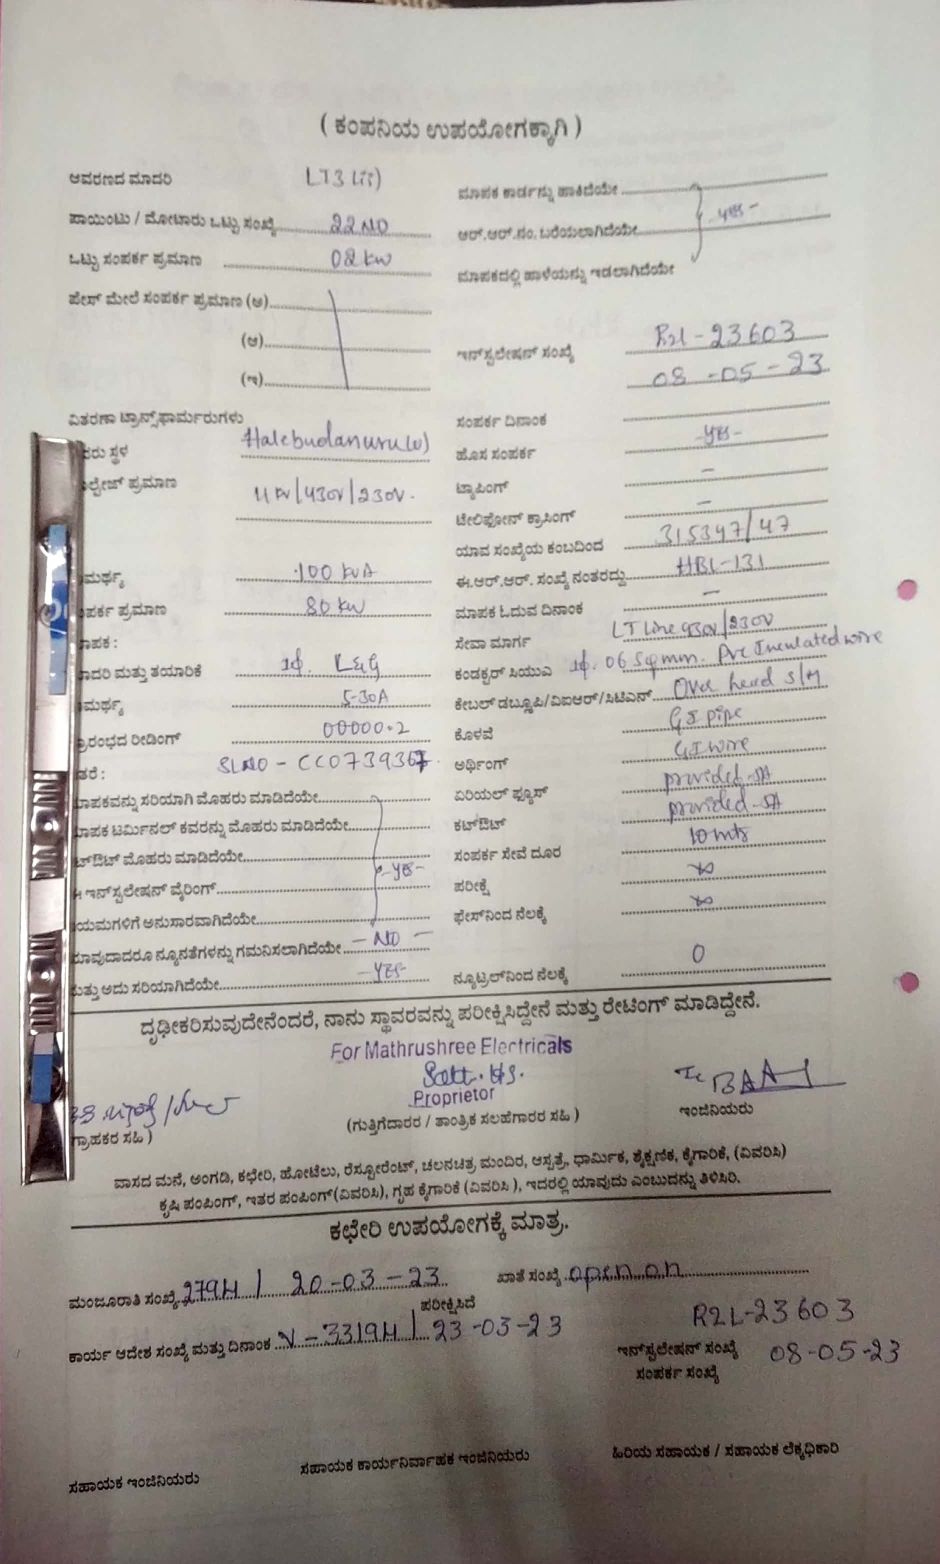 ( ಕಂಪನಿಯ ಉಪಯೋಗಕ್ಕಾಗಿ )
ಆವರಣದ ಮಾದರಿ LT3
ಪಾಯಿಂಟು / ಮೋಟಾರು ಒಟ್ಟು ಸಂಖ್ಯೆ 22 NO
ಒಟ್ಟು ಸಂಪರ್ಕ ಪ್ರಮಾಣ 02 kw
ಪೇಸ್ ಮೇಲೆ ಸಂಪರ್ಕ ಪ್ರಮಾಣ (ಅ)
(ಆ)
(ಇ)
ವಿತರಣಾ ಟ್ರಾನ್ಸ್‌ಫಾರ್ಮರುಗಳು
ಸರು ಸ್ಥಳ Halebudanuru(v)
ಲ್ಟೇಜ್ ಪ್ರಮಾಣ 11 kv/430V/230V.
ಮರ್ಥ್ಯ 100 kVA
ಪರ್ಕ ಪ್ರಮಾಣ 80 kw
ಾಪಕ :
ಾದರಿ ಮತ್ತು ತಯಾರಿಕೆ 1ϕ. L&G
ಮರ್ಥ್ಯ 5-30A
್ರಾರಂಭದ ರೀಡಿಂಗ್ 00000.2
ತರೆ : SLNO - CC0739367
ಾಪಕವನ್ನು ಸರಿಯಾಗಿ ಮೊಹರು ಮಾಡಿದೆಯೇ
ಾಪಕ ಟರ್ಮಿನಲ್ ಕವರನ್ನು ಮೊಹರು ಮಾಡಿದೆಯೇ
ಟ್‌ಔಟ್ ಮೊಹರು ಮಾಡಿದೆಯೇ
ಇನ್‌ಸ್ಟಲೇಷನ್ ವೈರಿಂಗ್ -yes-
ಯಮಗಳಿಗೆ ಅನುಸಾರವಾಗಿದೆಯೇ
ಾವುದಾದರೂ ನ್ಯೂನತೆಗಳನ್ನು ಗಮನಿಸಲಾಗಿದೆಯೇ - NO -
ುತ್ತು ಅದು ಸರಿಯಾಗಿದೆಯೇ - yes -
ಮಾಪಕ ಕಾರ್ಡನ್ನು ಹಾಕಿದೆಯೇ
ಆರ್.ಆರ್.ನಂ. ಬರೆಯಲಾಗಿದೆಯೇ - yes -
ಮಾಪಕದಲ್ಲಿ ಹಾಳೆಯನ್ನು ಇಡಲಾಗಿದೆಯೇ
ಇನ್‌ಸ್ಟಲೇಷನ್ ಸಂಖ್ಯೆ R2L-23603
08 -05 - 23
ಸಂಪರ್ಕ ದಿನಾಂಕ
ಹೊಸ ಸಂಪರ್ಕ -yes-
ಟ್ಯಾಪಿಂಗ್ -
ಟೇಲಿಫೋನ್ ಕ್ರಾಸಿಂಗ್ -
ಯಾವ ಸಂಖ್ಯೆಯ ಕಂಬದಿಂದ 315347/47
ಈ.ಆರ್.ಆರ್. ಸಂಖ್ಯೆ ನಂತರದ್ದು HBL-131
ಮಾಪಕ ಓದುವ ದಿನಾಂಕ -
ಸೇವಾ ಮಾರ್ಗ LT Line 430V/230V
ಕಂಡಕ್ಟರ್ ಸಿಯುಎ 1ϕ. 06 Sqmm. Pvc Insulated wire
ಕೇಬಲ್ ಡಬ್ಲೂಪಿ/ವಿಐಆರ್/ಸಿಟಿಎನ್ Over head s/m
ಕೊಳವೆ GI pipe
ಅರ್ಥಿಂಗ್ GI wire
ಏರಿಯಲ್ ಫ್ಯೂಸ್ provided-5A
ಕಟ್‌ಔಟ್ provided-5A
ಸಂಪರ್ಕ ಸೇವೆ ದೂರ 10 mts
ಪರೀಕ್ಷೆ
ಫೇಸ್‌ನಿಂದ ನೆಲಕ್ಕೆ
ನ್ಯೂಟ್ರಲ್‌ನಿಂದ ನೆಲಕ್ಕೆ 0
ದೃಢೀಕರಿಸುವುದೇನೆಂದರೆ, ನಾನು ಸ್ಥಾವರವನ್ನು ಪರೀಕ್ಷಿಸಿದ್ದೇನೆ ಮತ್ತು ರೇಟಿಂಗ್ ಮಾಡಿದ್ದೇನೆ.
For Mathrushree Electricals
Proprietor
ಗ್ರಾಹಕರ ಸಹಿ )
(ಗುತ್ತಿಗೆದಾರರ / ತಾಂತ್ರಿಕ ಸಲಹೆಗಾರರ ಸಹಿ )
ಇಂಜಿನಿಯರು
ವಾಸದ ಮನೆ, ಅಂಗಡಿ, ಕಛೇರಿ, ಹೋಟೆಲು, ರೆಸ್ಟೋರೆಂಟ್, ಚಲನಚಿತ್ರ ಮಂದಿರ, ಆಸ್ಪತ್ರೆ, ಧಾರ್ಮಿಕ, ಶೈಕ್ಷಣಿಕ, ಕೈಗಾರಿಕೆ, (ವಿವರಿಸಿ)
ಕೃಷಿ ಪಂಪಿಂಗ್, ಇತರ ಪಂಪಿಂಗ್(ವಿವರಿಸಿ), ಗೃಹ ಕೈಗಾರಿಕೆ (ವಿವರಿಸಿ ), ಇದರಲ್ಲಿ ಯಾವುದು ಎಂಬುದನ್ನು ತಿಳಿಸಿರಿ.
ಕಛೇರಿ ಉಪಯೋಗಕ್ಕೆ ಮಾತ್ರ.
ಮಂಜೂರಾತಿ ಸಂಖ್ಯೆ 279H / 20-03-23 ಖಾತೆ ಸಂಖ್ಯೆ open on
ಪರೀಕ್ಷಿಸಿದೆ
ಕಾರ್ಯ ಆದೇಶ ಸಂಖ್ಯೆ ಮತ್ತು ದಿನಾಂಕ V-3319H / 23-03-23
R2L-23603
ಇನ್‌ಸ್ಟಲೇಷನ್ ಸಂಖ್ಯೆ 08-05-23
ಸಂಪರ್ಕ ಸಂಖ್ಯೆ
ಸಹಾಯಕ ಇಂಜಿನಿಯರು
ಸಹಾಯಕ ಕಾರ್ಯನಿರ್ವಾಹಕ ಇಂಜಿನಿಯರು
ಹಿರಿಯ ಸಹಾಯಕ / ಸಹಾಯಕ ಲೆಕ್ಕಧಿಕಾರಿ